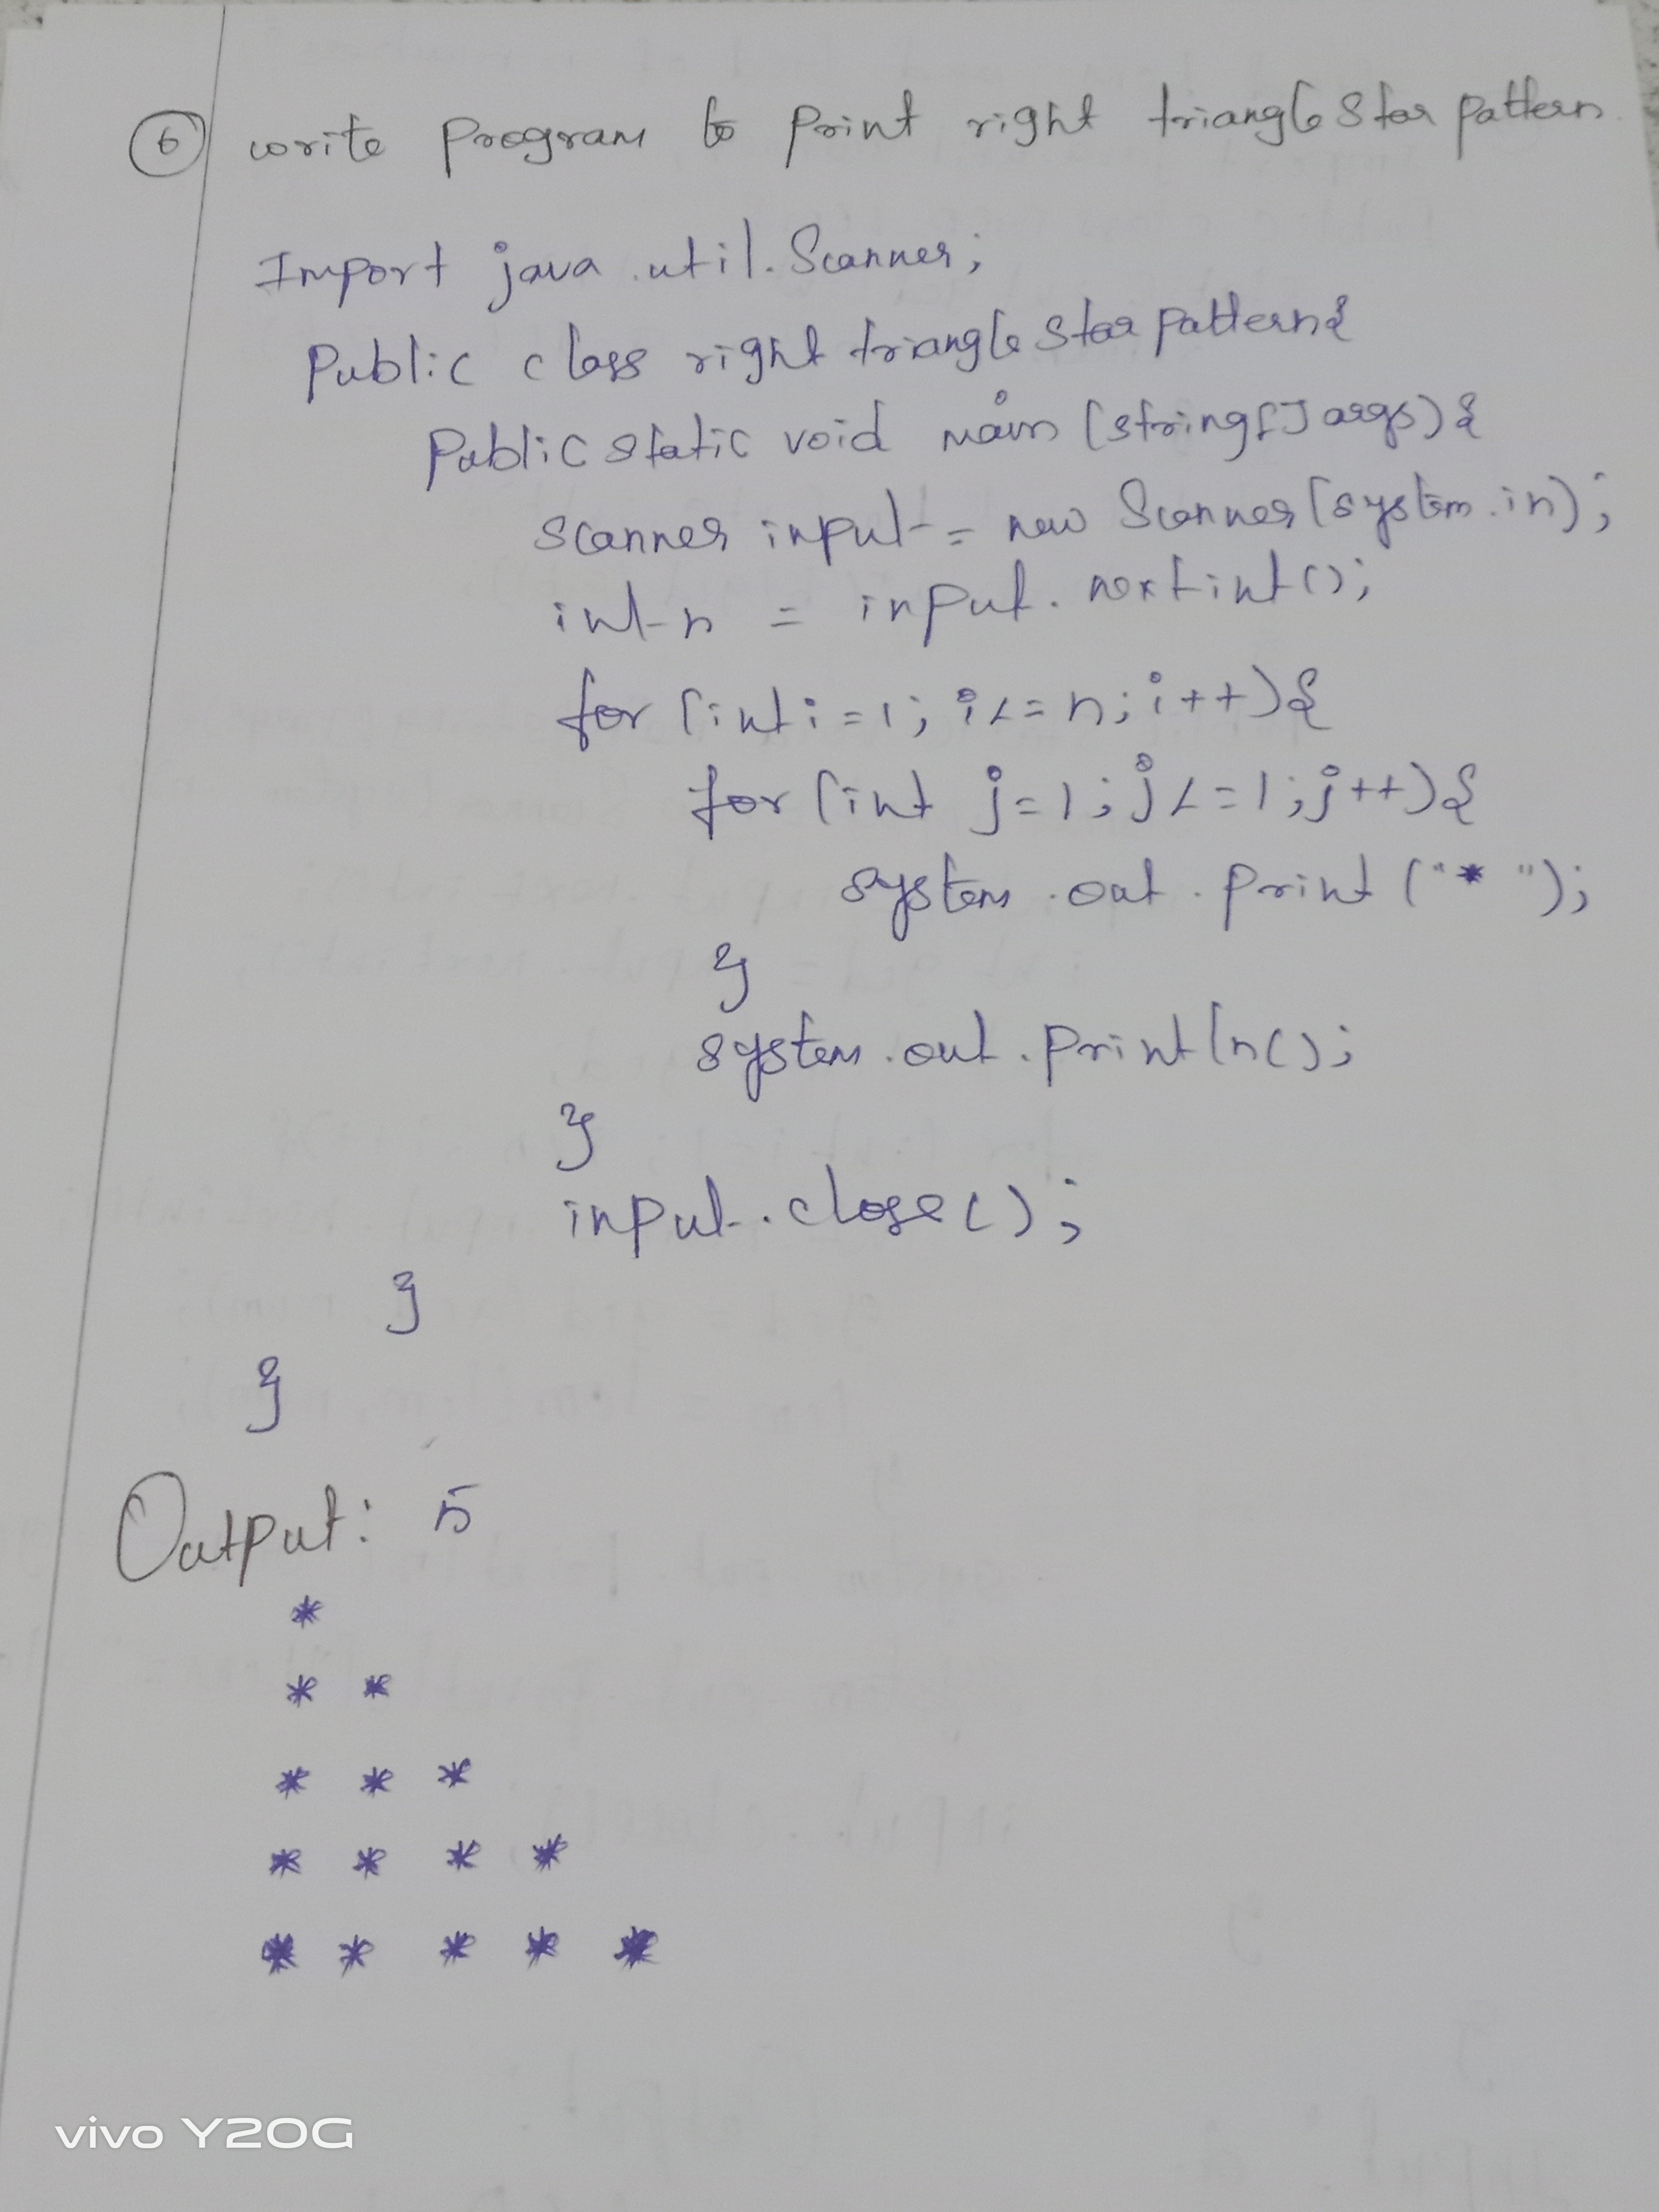 6 write program to print right triangle star pattern
Import java.util.Scanner;
Public class right triangle star pattern{
Public static void main (string[] args){
scanner input = new Scanner(system.in);
int n = input.nextint();
for (int i=1; i<=n; i++){
for (int j=1; j<=1; j++){
system.out.print("* ");
}
system.out.println();
}
input.close();
}
}
Output: 5
*
* *
* * *
* * * *
* * * * *
vivo Y20G